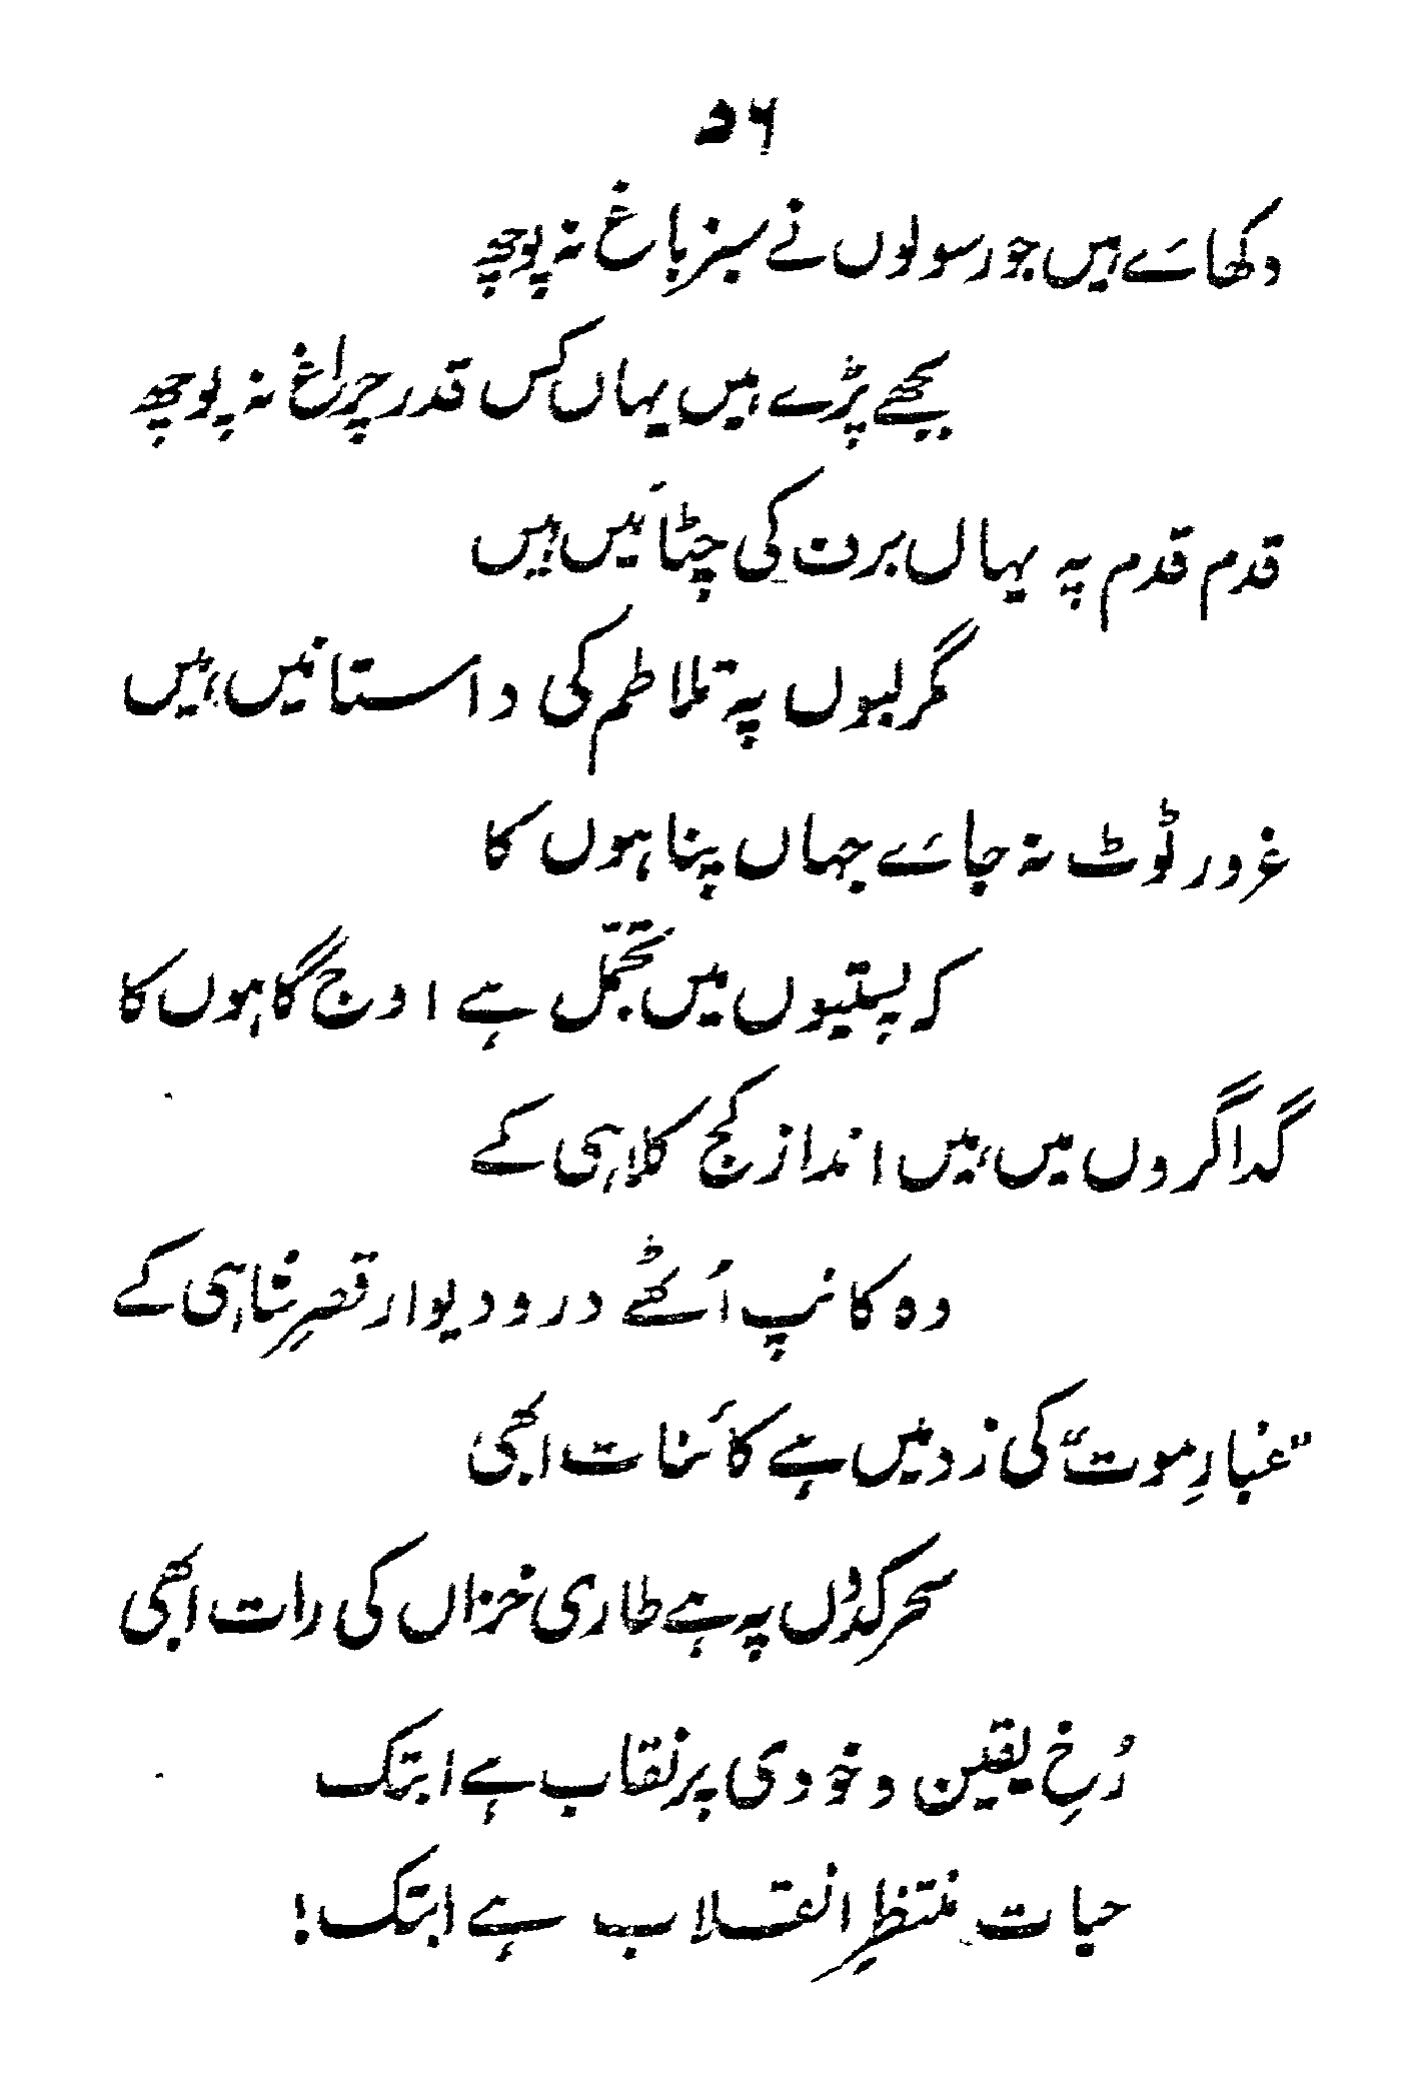 ۵۶
دکھائے ہیں جو رسولوں نے سبز باغ نہ پوچھ
بجھے پڑے ہیں یہاں کس قدر چراغ نہ پوچھ
قدم قدم پہ یہاں برف کی چٹانیں ہیں
مگر لبوں پہ تلاطم کی داستانیں ہیں
غرور ٹوٹ نہ جائے جہاں پناہوں کا
کہ پستیوں میں تجمّل ہے اوج گاہوں کا
گداگروں میں ہیں انداز کج کلاہی کے
وہ کانپ اُٹھے در و دیوار قصرِ شاہی کے
"غبارِ موت" کی زد میں ہے کائنات ابھی
سحر کدوں پہ ہے طاری خزاں کی رات ابھی
رُخِ یقین و خودی پر نقاب ہے ابتک
حیات منتظرِ انقلاب ہے ابتک!